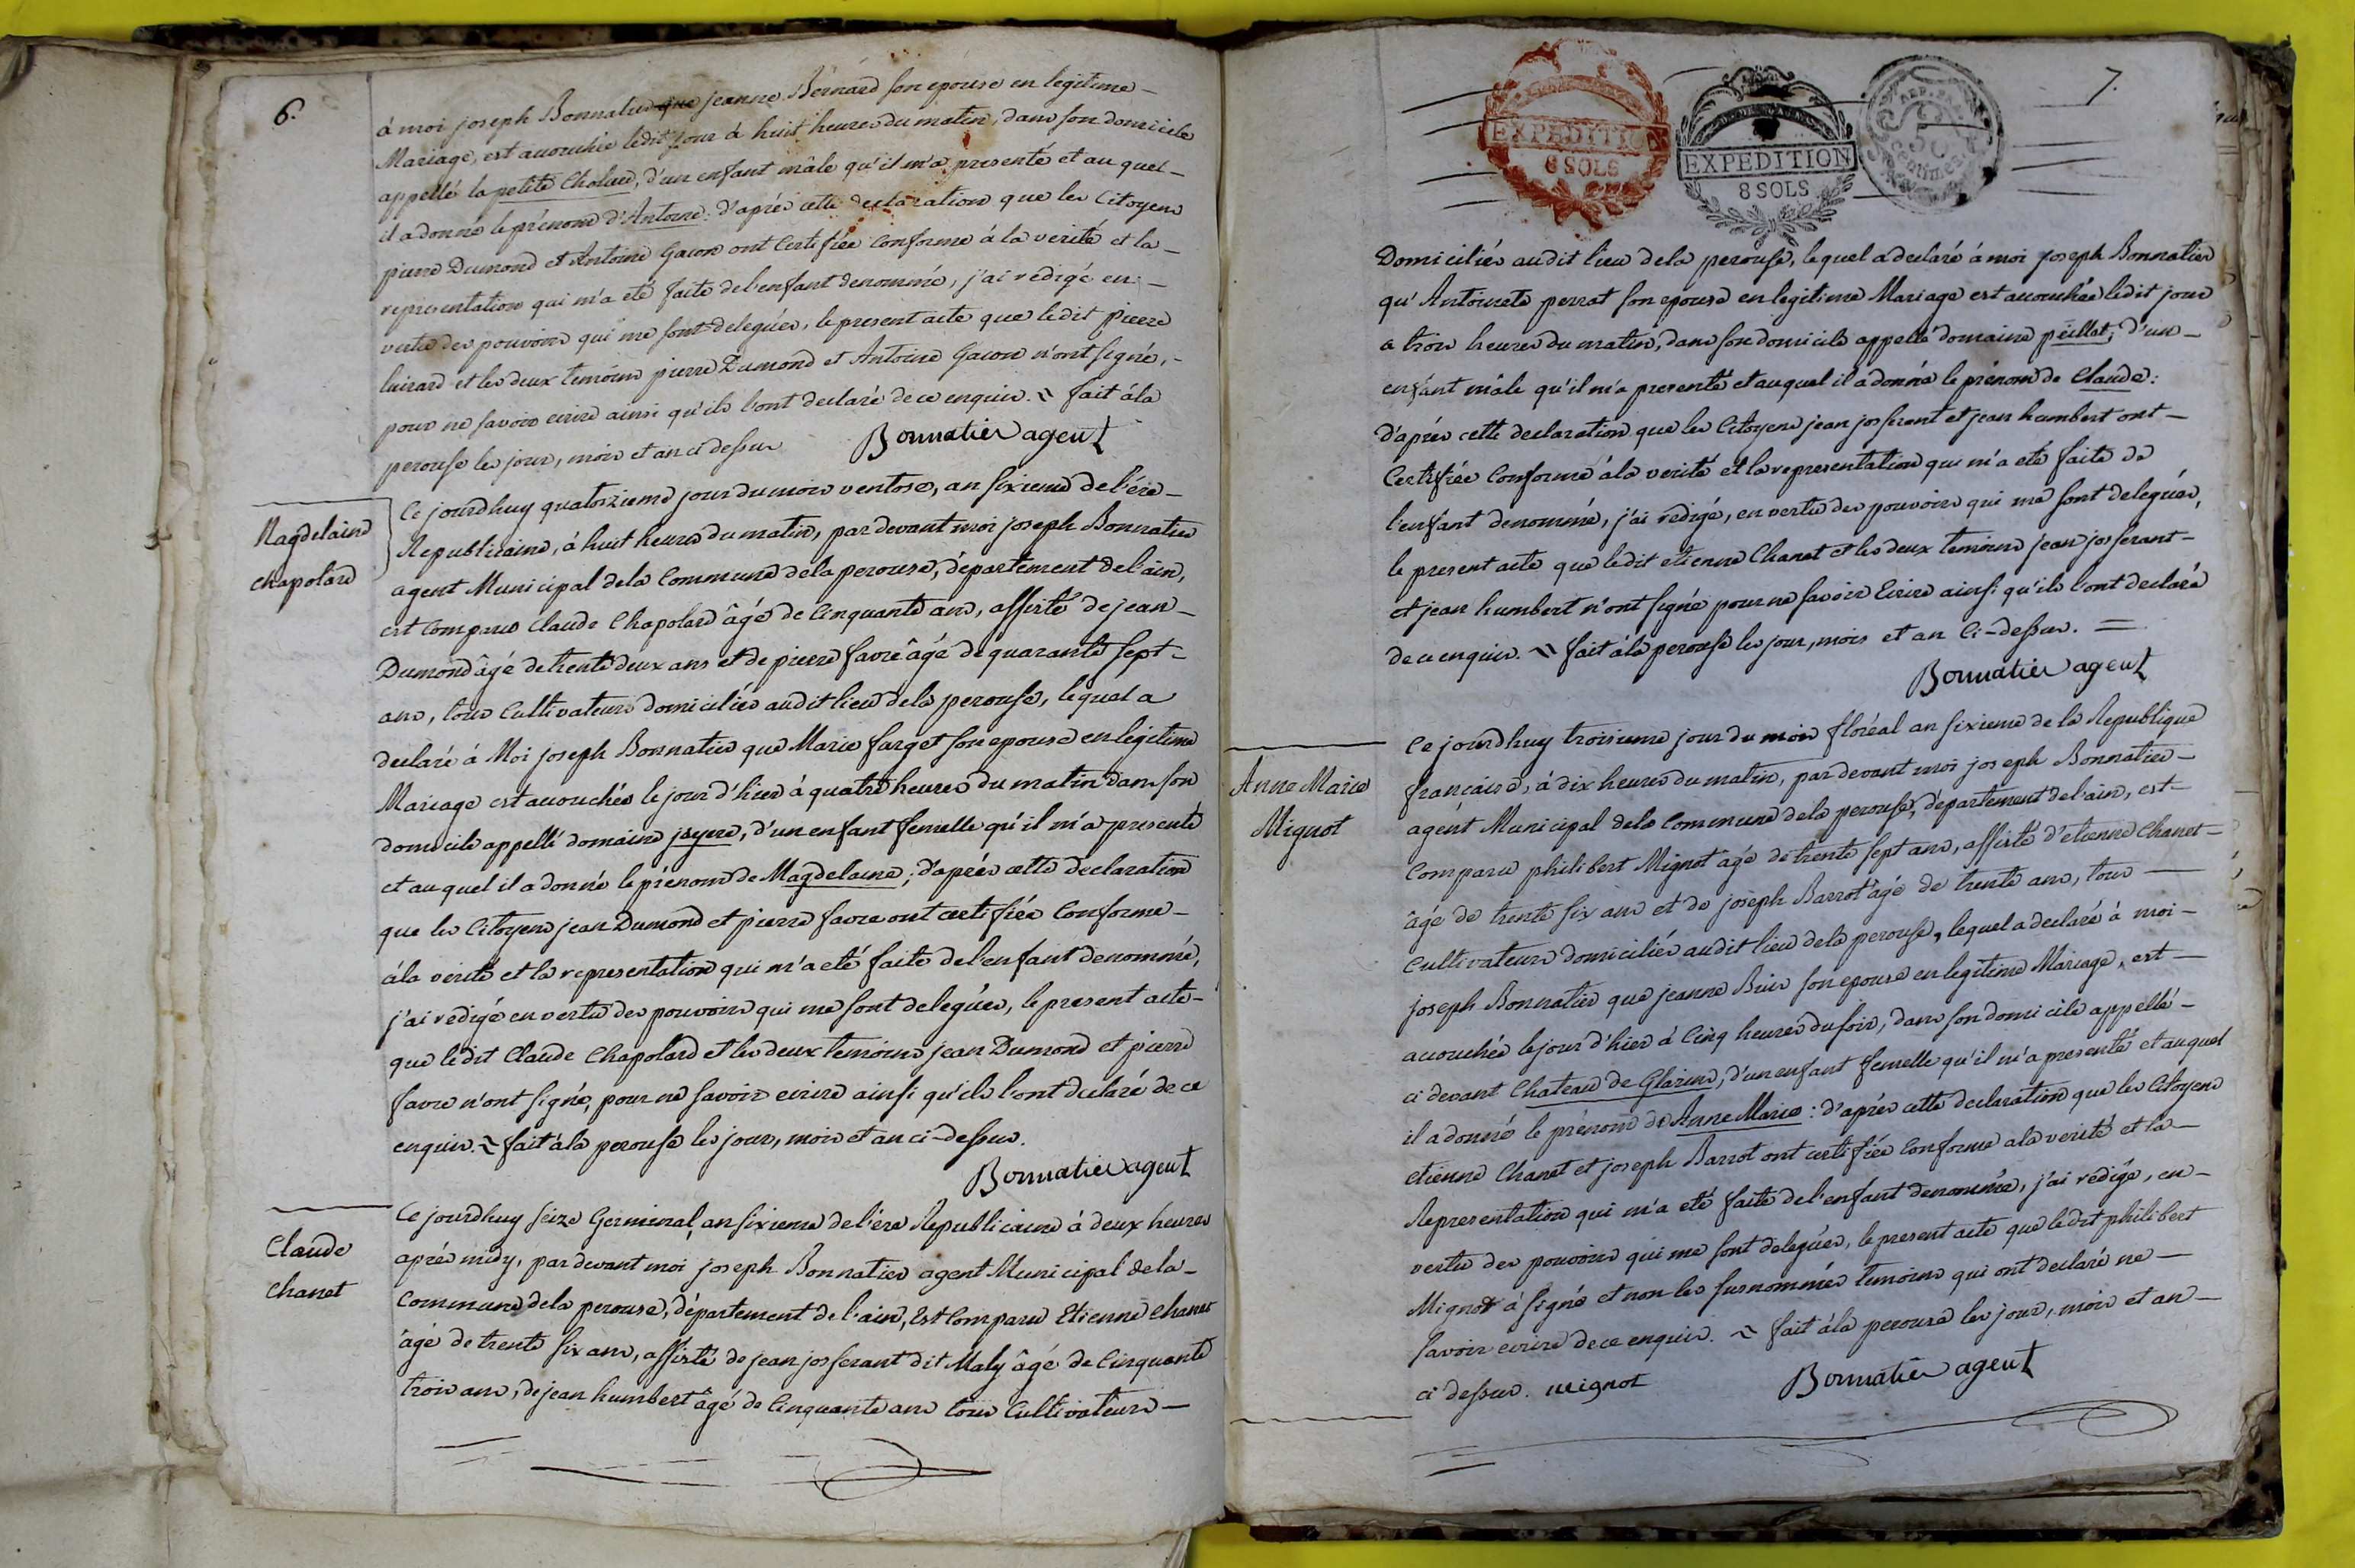 6.
à moi joseph Bonnatier que jeanne Bernard son epouse en legitime
Mariage, est accouchée ledit jour à huit heures du matin, dans son domicile
appellé la petite Cholure, d'un enfant mâle qu'il m'a presenté et au quel
il a donné le prénom d'Antoine: d'après cette declaration que les Citoyens
pierre Dumond et Antoine Gacon ont Certifiée Conforme à la verité et la
representation qui m'a eté faite de l'enfant denommé, j'ai redigé en
vertu des pouvoirs qui me sont delegués, le present acte que ledit pierre
luirard et les deux temoins pierre Dumond et Antoine Gacon n'ont signé,
pour ne savoir ecrire ainsi qu'ils l'ont declaré de ce enquis. fait à la
perouse les jour, mois et an ci dessus
Bonnatier agent
Magdelaine
Chapolard
Ce jourdhuy quatorzieme jour du mois ventose, an sixieme de l'ére
Republicaine, à huit heures du matin, par devant moi joseph Bonnatier
agent Municipal de la Commune de la perouse, département de l'ain,
est Comparu Claude Chapolard âgé de Cinquante ans, assisté de jean
Dumond âgé de trente deux ans et de pierre favre âgé de quarante sept
ans, tous Cultivateurs domiciliés audit lieu de la perouse, lequel a
declaré à Moi joseph Bonnatier que Marie farget son epouse en legitime
Mariage est accouchée le jour d'hier à quatre heures du matin dans son
domicile appellé domaine joyere, d'un enfant femelle qu'il m'a presenté
et au quel il a donné le prénom de Magdelaine; d'après cette declaration
que les Citoyens jean Dumond et pierre favre ont certifiée Conforme
à la verité et la representation qui m'a eté faite de l'enfant denommé,
j'ai redigé en vertu des pouvoirs qui me sont delegués, le present acte
que ledit Claude Chapolard et les deux temoins jean Dumond et pierre
favre n'ont signé, pour ne savoir ecrire ainsi qu'ils l'ont declaré de ce
enquis. fait à la perouse les jour, mois et an ci-dessus.
Bonnatier agent
Claude
Chanet
Ce jourdhuy seize Germinal, an sixieme de l'ére Republicaine à deux heures
après midy, par devant moi joseph Bonnatier agent Municipal de la
Commune de la perouse, département de l'ain, Est Comparu Etienne Chanet
âgé de trente six ans, assisté de jean josserant dit Maly âgé de Cinquante
trois ans, de jean humbert âgé de Cinquante ans tous Cultivateurs
7.
EXPEDITION
8 SOLS
EXPEDITION
8 SOLS
Domiciliés audit lieu de la perouse, lequel a declaré à moi joseph Bonnatier
qu'Antoinete perrat son epouse en legitime Mariage est accouchée ledit jour
a trois heures du matin, dans son domicile appellé domaine peillat, d'un
enfant mâle qu'il m'a presenté et auquel il a donné le prénom de Claude:
d'après cette declaration que les Citoyens jean josserant et jean humbert ont
Certifiée Conforme à la verité et la representation qui m'a eté faite de
l'enfant denommé, j'ai redigé, en vertu des pouvoirs qui me sont delegués,
le present acte que ledit etienne Chanet et les deux temoins jean josserant
et jean humbert n'ont signé pour ne savoir Ecrire ainsi qu'ils l'ont declaré
de ce enquis. fait à la perouse les jour, mois et an Ci-dessus.
Bonnatier agent
Anne Marie
Mignot
Ce jourdhuy troisieme jour du mois floréal an sixieme de la Republique
française, à dix heures du matin, par devant moi joseph Bonnatier
agent Municipal de la Commune de la perouse, département de l'ain, est
Comparu philibert Mignot âgé de trente sept ans, assisté d'etienne Chanet
âgé de trente six ans et de joseph Barrot âgé de trente ans, tous
Cultivateurs domiciliés audit lieu de la perouse, lequel a declaré à moi
joseph Bonnatier que jeanne Buis son epouse en legitime Mariage, est
accouchée le jour d'hier à Cinq heures du soir, dans son domicile appellé
ci devant Chateau de Glareins, d'un enfant femelle qu'il m'a presenté et auquel
il a donné le prénom de Anne Marie: d'après cette declaration que les Citoyens
etienne Chanet et joseph Barrot ont certifiée Conforme a la verité et la
Representation qui m'a eté faite de l'enfant denommée, j'ai redigé, en
vertu des pouvoirs qui me sont delegués, le present acte que ledit philibert
Mignot à signé et non les susnommés temoins qui ont declaré ne
savoir ecrire de ce enquis. fait à la perouse les jour, mois et an
ci dessus. mignot
Bonnatier agent